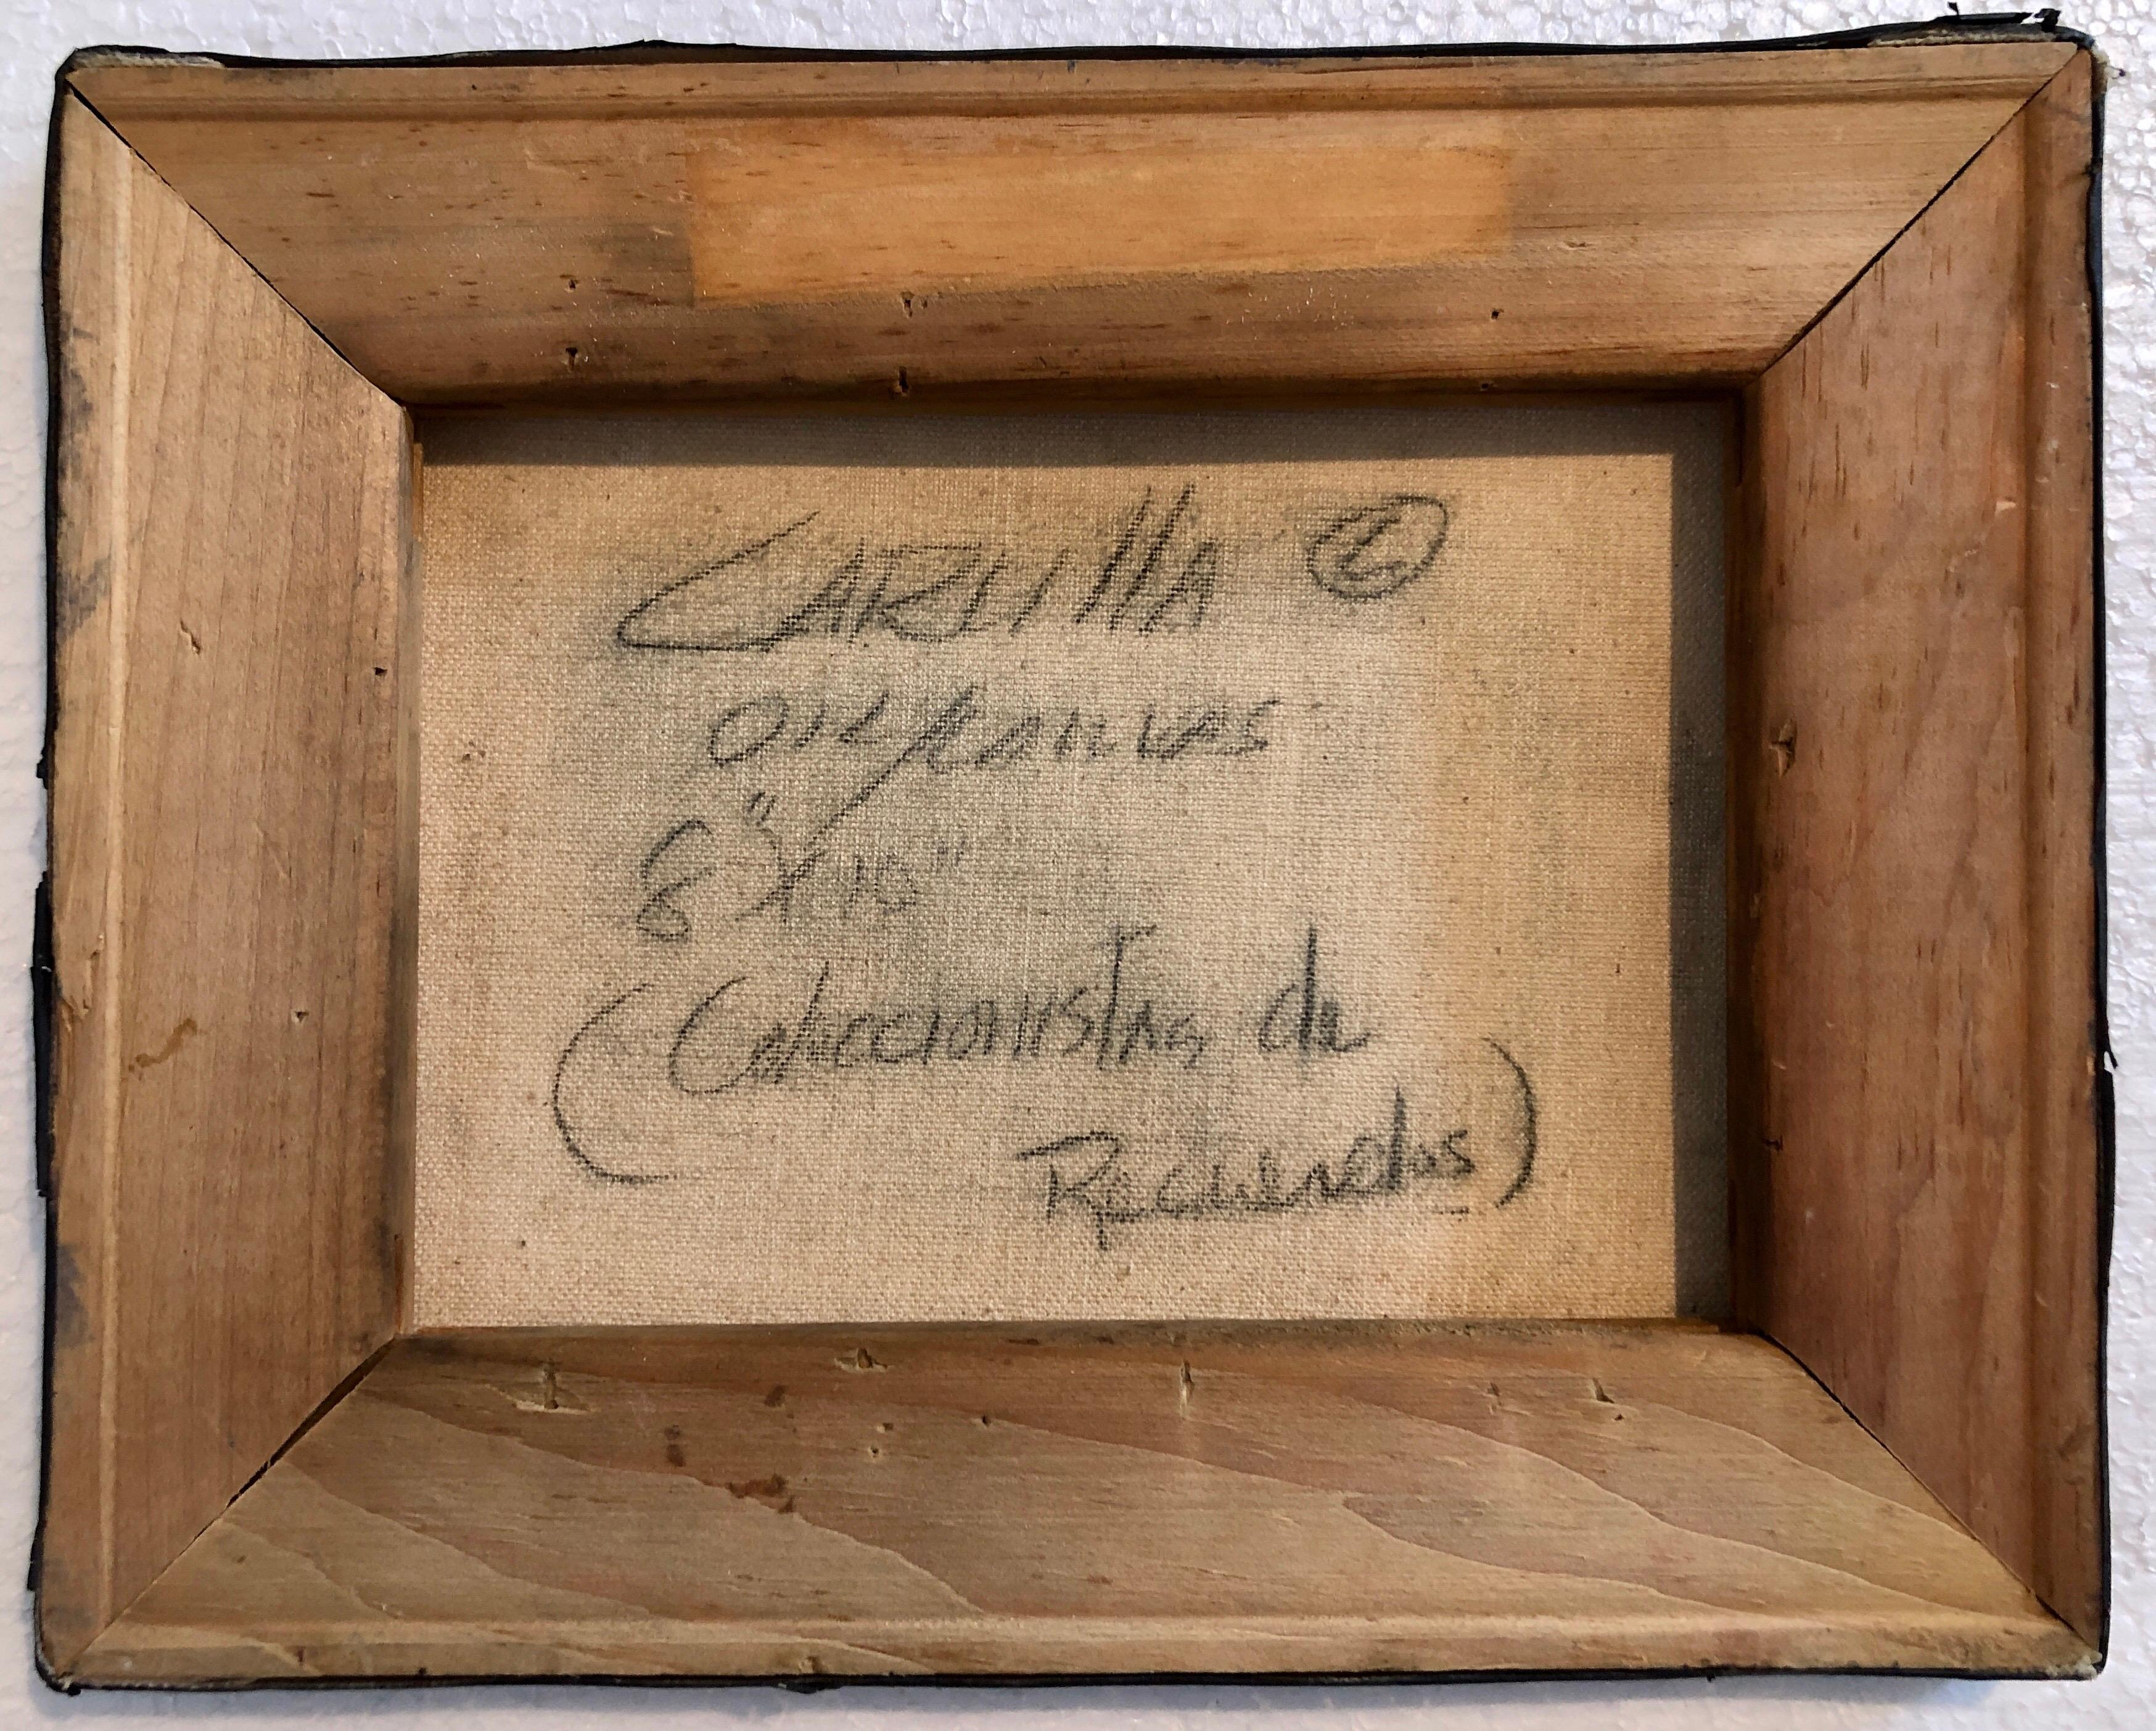 CARULLA ©
OIL/CANVAS
8" X 10"
(Coleccionistas de
Recuerdos)